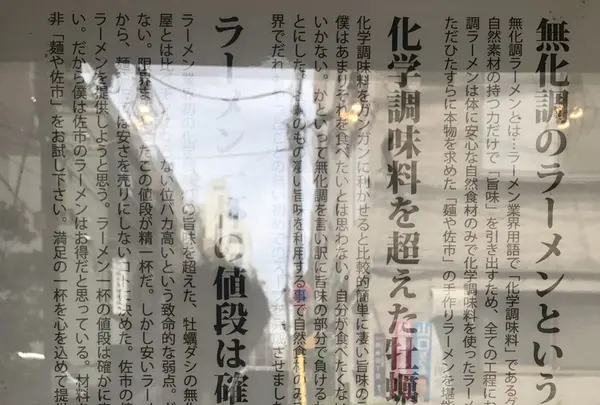 無化調のラーメンという
無化調ラーメンとは…ラーメン業界用語で「化学調味料」であるグ
自然素材の持つ力だけで「旨味」を引き出すため、全ての工程にお
調ラーメンは体に安心な自然食材のみで化学調味料を使ったラーメ
ただひたすらに本物を求めた「麺や佐市」の手作りラーメンを堪能
化学調味料を超えた牡蠣
化学調味料をガンガンに利かせると比較的簡単に凄い旨味のラ
僕はあまりそれを食べたいとは思わない。自分が食べたくない
いかない。かといって無化調を言い訳に旨味の部分で負ける
とにした。 のもの凄い旨味を利用する事で自然食材のみ
界でだれ させまし
ラーメン の値段は確
ラーメン の旨味を超えた、牡蠣ダシの無
屋とは比 ない位バカ高いという致命的な弱点。
ない。限 たこの値段が精一杯だ。しかし安いラー
から、麺 は安さを売りにしないコトに決めた。佐市の値
ラーメンを提供しようと思う。ラーメン一杯の値段は確かに
い。だから僕は佐市のラーメンはお得だと思っている。材料
非「麺や佐市」をお試し下さい。満足の一杯を心を込めて提